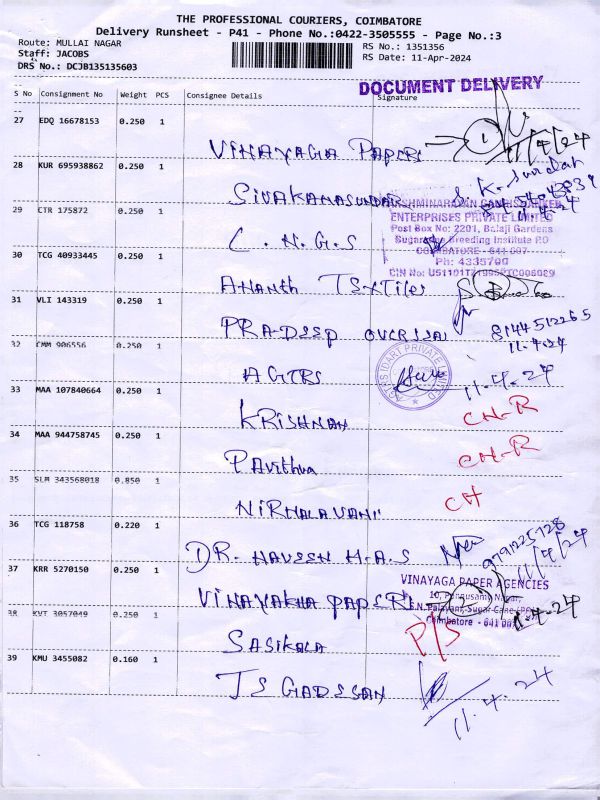 THE PROFESSIONAL COURIERS, COIMBATORE
Delivery Runsheet - P41 - Phone No.:0422-3505555 - Page No.:3
Route: MULLAI NAGAR
Staff: JACOBS
DRS No.: DCJB135135603
RS No.: 1351356
RS Date: 11-Apr-2024
DOCUMENT DELIVERY
S No Consignment No Weight PCS Consignee Details Signature
27 EDQ 16678153 0.250 1
VINAYAGA PAPERS 1 11/4/24
28 KUR 695938862 0.250 1
SIVAKAMASUNDARI S.K.
11.4.24
29 CTR 175872 0.250 1
C.N.G.S
ENTERPRISES PRIVATE LIMITED
Post Box No: 2201, Balaji Gardens
Sugarcane Breeding Institute P.O
COIMBATORE - 641 007
Ph: 4335700
30 TCG 40933445 0.250 1
ANANTH TEXTILES
31 VLI 143319 0.250 1
PRADEEP OVERSEA 8144512265
11.4.24
32 CMM 906556 0.250 1
AGTRS 11.4.24
PRIVATE LIMITED
33 MAA 107840664 0.250 1
KRISHNAN CH-R
34 MAA 944758745 0.250 1
PAVITHRA CH-R
35 SLM 343568018 0.850 1
NIRMALAVANI CH
36 TCG 118758 0.220 1
DR. NAVEEN H.A.S 9791225128
11/4/24
37 KRR 5270150 0.250 1
VINAYAKHA PAPERS
VINAYAGA PAPER AGENCIES
10, Ponnusamy Nagar,
Coimbatore - 641 007
38 KVT 3057049 0.250 1
SASIKALA P/S
39 KMU 3455082 0.160 1
11.4.24